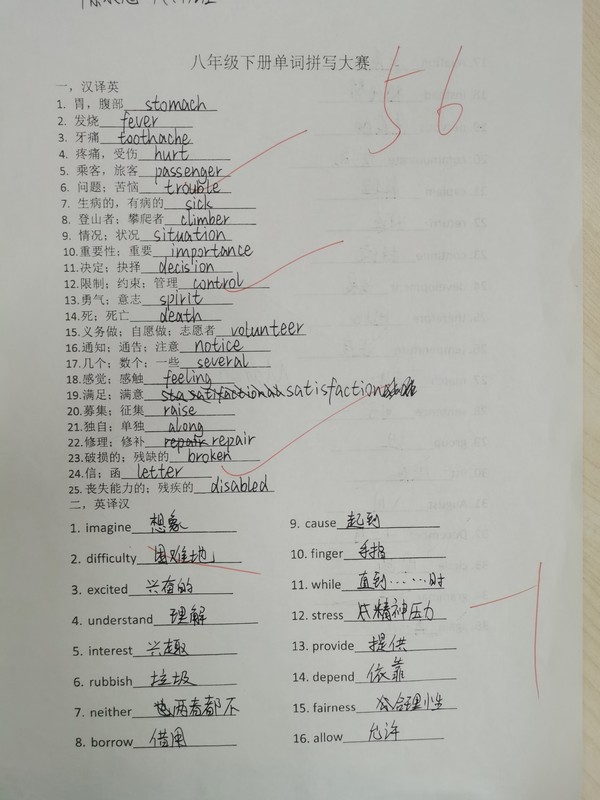 八年级下册单词拼写大赛
56
一，汉译英
1. 胃，腹部 stomach
2. 发烧 fever
3. 牙痛 toothache
4. 疼痛，受伤 hurt
5. 乘客，旅客 passenger
6. 问题；苦恼 trouble
7. 生病的，有病的 sick
8. 登山者；攀爬者 climber
9. 情况；状况 situation
10.重要性；重要 importance
11.决定；抉择 decision
12.限制；约束；管理 control
13.勇气；意志 spirit
14.死；死亡 death
15.义务做；自愿做；志愿者 volunteer
16.通知；通告；注意 notice
17.几个；数个；一些 several
18.感觉；感触 feeling
19.满足；满意 satisfaction
20.募集；征集 raise
21.独自；单独 along
22.修理；修补 repair repair
23.破损的；残缺的 broken
24.信；函 letter
25. 丧失能力的；残疾的 disabled
二，英译汉
1. imagine 想象
2. difficulty 困难地
3. excited 兴奋的
4. understand 理解
5. interest 兴趣
6. rubbish 垃圾
7. neither 两者都不
8. borrow 借用
9. cause 起到
10. finger 手指
11. while 直到……时
12. stress 精神压力
13. provide 提供
14. depend 依靠
15. fairness 合理性
16. allow 允许
-1